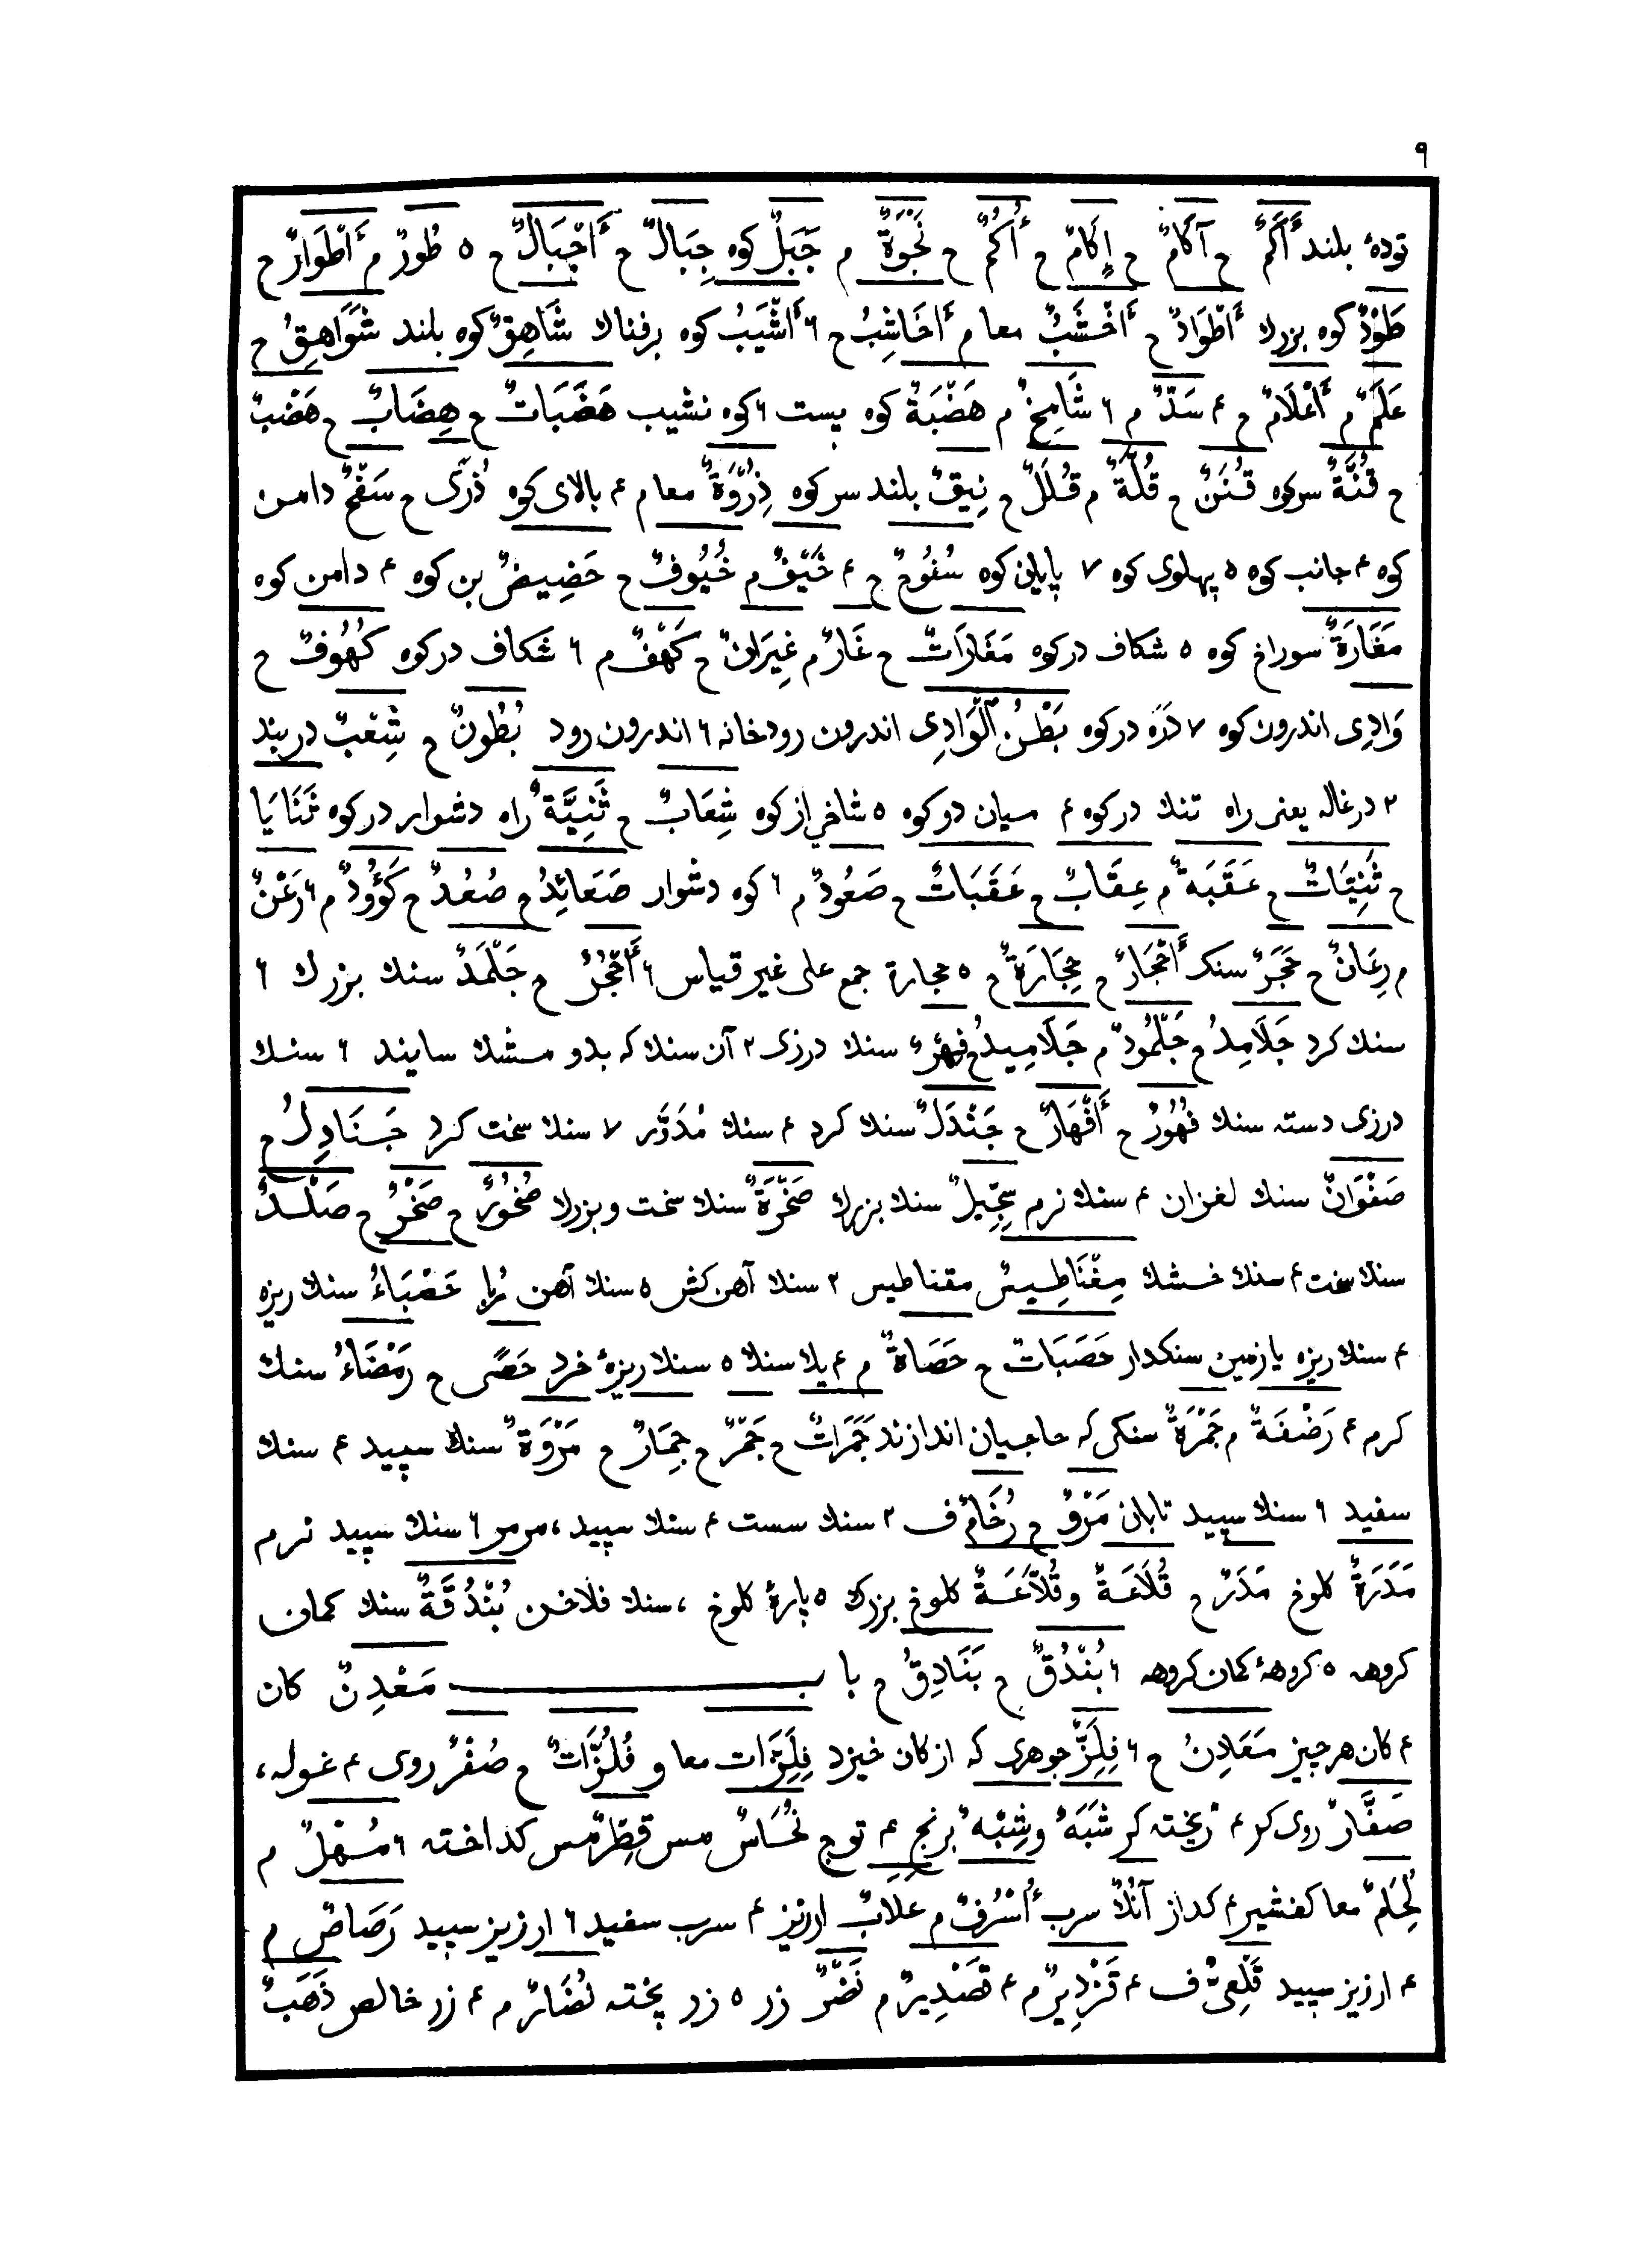 ٩
تودهٔ بلند أَكَمٌ ح آكَامٌ ح إِكَامٌ ح أُكُمٌ ح نَجْوَةٌ م جَبَلٌ كوه جِبَالٌ ح أَجْبَالٌ ح ٥ طُورٌ م أَطْوَارٌ ح
طَوْدٌ كوه بزرك أَطْوَادٌ ح أَخْشَبٌ معا م أَخَاشِبُ ح ٦ أَشْيَبُ كوه برفناك شَاهِقٌ كوه بلند شَوَاهِقُ ح
عَلَمٌ م أَعْلَامٌ ح ٤ سَدٌّ م ٦ شَامِخٌ م هَضْبَةٌ كوه پست ٦ كوه نشيب هَضَبَاتٌ ح هِضَابٌ ح هَضْبٌ
ح قُنَّةٌ سر كوه قُنَنٌ ح قُلَّةٌ م قُلَلٌ ح نِيقٌ بلند سر كوه ذِرْوَةٌ معا م ٤ بالاى كوه ذُرًى ح سَفْحٌ دامن
كوه ٤ جانب كوه ٥ پهلوى كوه ٧ پايان كوه سُفُوحٌ ح ٤ خَيْفٌ م خُيُوفٌ ح حَضِيضٌ بن كوه ٤ دامن كوه
مَغَارَةٌ سوراخ كوه ٥ شكاف در كوه مَغَارَاتٌ ح غَارٌ م غِيرَانٌ ح كَهْفٌ م ٦ شكاف در كوه كُهُوفٌ ح
وَادِى اندرون كوه ٧ دَرّه در كوه بَطْنُ الْوَادِى اندرون رودخانه ٦ اندرون رود بُطُونٌ ح شِعْبٌ دربند
٢ درغاله يعنى راه تنك در كوه ٤ ميان دو كوه ٥ شاخى از كوه شِعَابٌ ح ثَنِيَّةٌ راه دشوار در كوه ثَنَايَا
ح ثَنِيَّاتٌ ح عَقَبَةٌ م عِقَابٌ ح عَقَبَاتٌ ح صَعُودٌ م ٦ كوه دشوار صَعَائِدُ ح صُعُدٌ ح كَؤُودٌ م ٦ رَعْنٌ
م رِعَانٌ ح حَجَرٌ سنك أَحْجَارٌ ح حِجَارَةٌ ح ٥ حجارة جمع على غير قياس ٦ أَحْجُرٌ ح جَلْمَدٌ سنك بزرك ٦
سنك كرد جَلَامِدُ ح جُلْمُودٌ م جَلَامِيدُ ح فِهْرٌ سنك درزى ٢ آن سنك كه بدو مشك سايند ٦ سنك
درزى دسته سنك فُهُورٌ ح أَفْهَارٌ ح جَنْدَلٌ سنك كرد ٤ سنك مُدَوَّر ٧ سنك سخت كرد جَنَادِلُ ح
صَفْوَانٌ سنك لغزان ٤ سنك نرم سِجِّيلٌ سنك بزرك صَخْرَةٌ سنك سخت و بزرك صُخُورٌ ح صَخْرٌ ح صَلْدٌ
سنك سخت ٤ سنك خشك مِغْنَاطِيسٌ مقناطيس ٢ سنك آهن كش ٥ سنك آهن رُبا حَصْبَاءُ سنك ريزه
٤ سنك ريزه يا زمين سنكدار حَصَبَاتٌ ح حَصَاةٌ م ٤ يك سنك ٥ سنك ريزهٔ خرد حَصًى ح رَمْضَاءُ سنك
كرم ٤ رَضْفَةٌ م جَمْرَةٌ سنكى كه حاجيان اندازند جَمَرَاتٌ ح جَمْرٌ ح جِمَارٌ ح مَرْوَةٌ سنك سپيد ٤ سنك
سفيد ٦ سنك سپيد تابان مَرْوٌ ح رُخَامٌ ف ٢ سنك سست ٤ سنك سپيد، مرمر ٦ سنك سپيد نرم
مَدَرَةٌ كلوخ مَدَرٌ ح قُلَاعَةٌ و قُلَّاعَةٌ كلوخ بزرك ٥ پارهٔ كلوخ ، سنك فلاخن بُنْدُقَةٌ سنك كمان
كروهه ٥ كروههٔ كمان كروهه ٦ بُنْدُقٌ ح بَنَادِقُ ح باب مَعْدِنٌ كان
٤ كان هر چيز مَعَادِنُ ح ٦ فِلِزٌّ جوهرى كه از كان خيزد فِلِزَّات معا و فُلُزَّاتٌ ح صُفْرٌ روى ٤ غوله،
صَفَّارٌ روى كر ٤ ريخته كر شَبَهٌ و شِبْهٌ برنج ٤ توج نُحَاسٌ مس قِطْرٌ مس كداخته ٦ مُهْلٌ م
لِحَامٌ معا كفشير ٤ كداز آنُكٌ سرب أُسْرُفٌ م علابٌ ارزيز ٤ سرب سفيد ٦ ارزيز سپيد رَصَاصٌ م
٤ ارزيز سپيد قَلْعِىٌّ ف ٤ قَزْدِيرٌ م ٤ قَصْدِيرٌ م نَضْرٌ زر ٥ زر پخته نُضَارٌ م ٤ زر خالص ذَهَبٌ